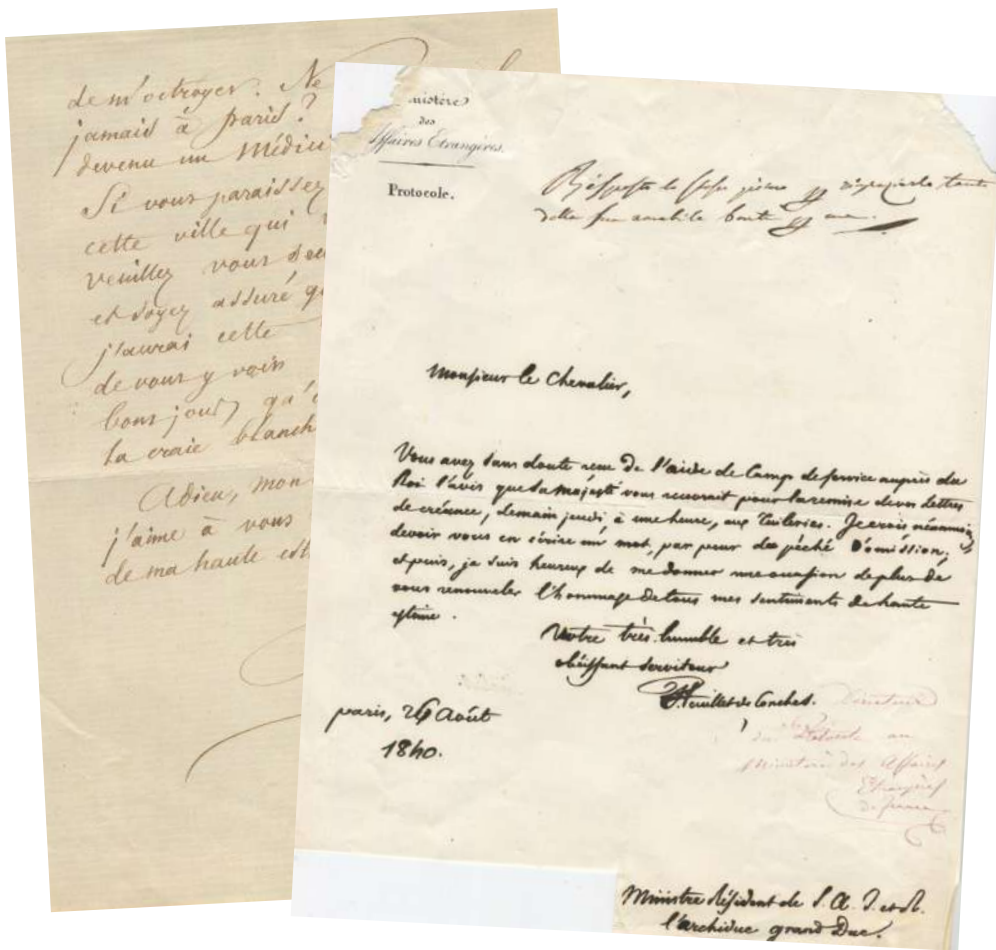 de m'octroyer. Ne
jamais à paris?
devenu un Médici
Si vous paraissez
cette ville qui
veuillez vous
et soyez assuré qu
j'aurai cette
de vous y voir
bons jours qu'
la craie blanch
Adieu, mon
j'aime à vous
de ma haute est
nistère
des
Affaires Etrangères.
Protocole.
della sua amabile bontà
Monsieur le Chevalier,
Vous avez sans doute reçu de l'aide de Camp de service auprès du
Roi l'avis que Sa Majesté vous recevrait pour la remise de vos lettres
de créance, demain jeudi, à une heure, aux Tuileries. Je crois néanmoins
devoir vous en écrire un mot, par peur du péché d'omission;
et puis, je suis heureux de me donner une occasion de plus de
vous renouveler l'hommage de tous mes sentiments de haute
estime.
Votre très humble et très
obéissant serviteur
F. Feuillet de Conches.
Directeur
du Protocole au
Ministère des Affaires
Etrangères
de France
paris, 26 Août
1840.
Ministre Résident de S. A. I. et R.
l'archiduc grand Duc.